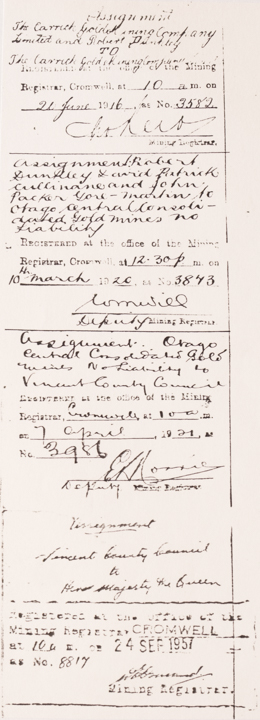 Assignment
The Carrick Gold Mining Company
Limited and Robert Dunkley
TO
The Carrick Gold Mining Company
REGISTERED at the office of the Mining
Registrar, Cromwell, at 10 a.m. on
21 June 1916, as No. 3582
Mining Registrar.
Assignment Robert
Dunkley David Patrick
Cullinane and John
Packer Gore-Martin to
Otago Central Consoli-
dated Gold mines no
Liability
REGISTERED at the office of the Mining
Registrar, Cromwell, at 12.30 p.m. on
10th March 1920, as No. 3843
Deputy Mining Registrar
Assignment. Otago
Central Consolidated Gold
Mines No Liability to
Vincent County Council
REGISTERED at the office of the Mining
Registrar, Cromwell, at 10 a.m.
on 7 April, 1921, as
No. 3986
Deputy Mining Registrar
Assignment
Vincent County Council
to
Her Majesty the Queen
Registered at the office of the
Mining Registrar CROMWELL
at 10 a m. on 24 SEP 1957
as No. 8817
Mining Registrar.